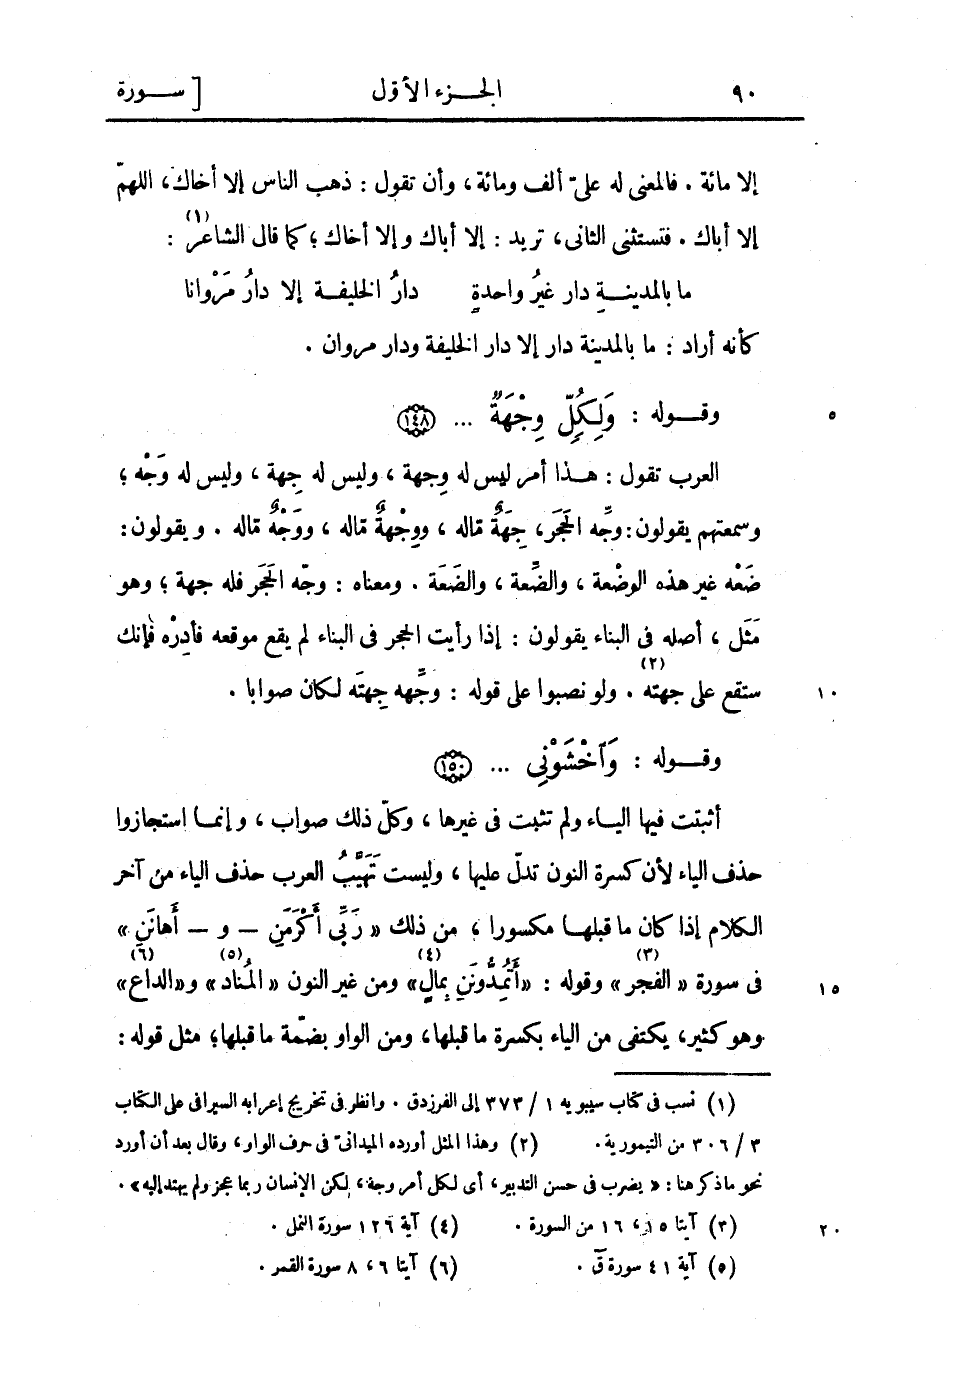 ٩٠ الجـــزء الأول [ ســـورة
إلا مائة . فالمعنى له علىّ ألف ومائة ، وأن تقول : ذهب الناس إلا أخاك ، اللهمّ
إلا أباك . فتستثنى الثانى ، تريد : إلا أباك وإلا أخاك ؛ كما قال الشاعر (١) :
ما بالمدينـــةِ دار غيرُ واحدةٍ دارُ الخليفــة إلا دارُ مَرْوانا
كأنه أراد : ما بالمدينة دار إلا دار الخليفة ودار مروان .
٥ وقـــوله : وَلِكُلٍّ وِجْهَةٌ ... (١٤٨)
العرب تقول : هــذا أمر ليس له وِجهة ، وليس له جِهة ، وليس له وَجْه ؛
وسمعتهم يقولون : وجِّه الحَجَر ، جِهَةٌ مّا له ، ووِجْهةٌ مّا له ، ووَجْهٌ مّا له . ويقولون :
ضَعْه غير هذه الوضْعة ، والضِّعة ، والضَعَة . ومعناه : وجّه الحَجَر فله جهة ؛ وهو
مَثَل ، أصله فى البناء يقولون : إذا رأيت الحجر فى البناء لم يقع موقعه فأدِرْه فإنك
١٠ ستقع على جهته (٢) . ولو نصبوا على قوله : وجِّهه جِهتَه لكان صوابا .
وقـــوله : وَٱخْشَوْنِى ... (١٥٠)
أثبتت فيها اليــاء ولم تثبت فى غيرها ، وكلّ ذلك صواب ، وإنمــا استجازوا
حذف الياء لأن كسرة النون تدلّ عليها ، وليست تَهَيَّبُ العرب حذف الياء من آخر
الكلام إذا كان ما قبلهــا مكسورا ؛ من ذلك « رَبِّى أَكْرَمَنِ – و – أَهانَنِ »
١٥ فى سورة « الفجر (٣) » وقوله : « أَتُمِدُّونَنِ بِمالٍ (٤) » ومن غير النون « المُناد (٥) » و « الداع (٦) »
وهو كثير ، يكتفى من الياء بكسرة ما قبلها ، ومن الواو بضمّة ما قبلها ؛ مثل قوله :
(١) نسب فى كتاب سيبويه ١ / ٣٧٣ إلى الفرزدق . وانظر فى تخريج إعرابه السيرافى على الكتاب
٣ / ٣٠٦ من التيمورية . (٢) وهذا المثل أورده الميدانىّ فى حرف الواو ، وقال بعد أن أورد
نحو ما ذكر هنا : « يضرب فى حسن التدبير ، أى لكل أمر وجه ، لكن الإنسان ربما عجز ولم يهتد إليه » .
٢٠ (٣) آيتا ١٥ ، ١٦ من السورة . (٤) آية ١٢٦ سورة النمل .
(٥) آية ٤١ سورة قۤ . (٦) آيتا ٦ ، ٨ سورة القمر .